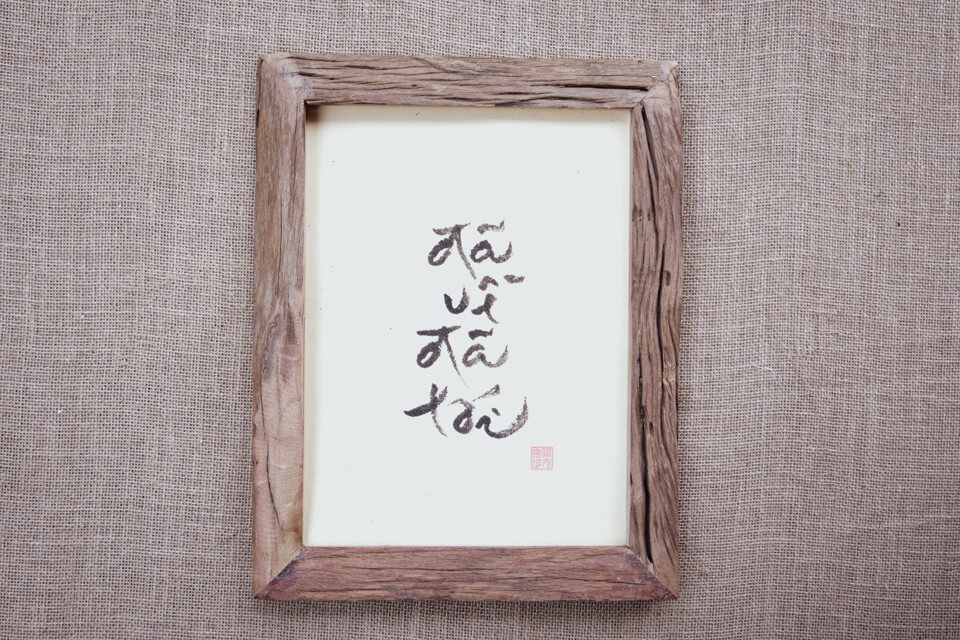 đã
về
đã
tới